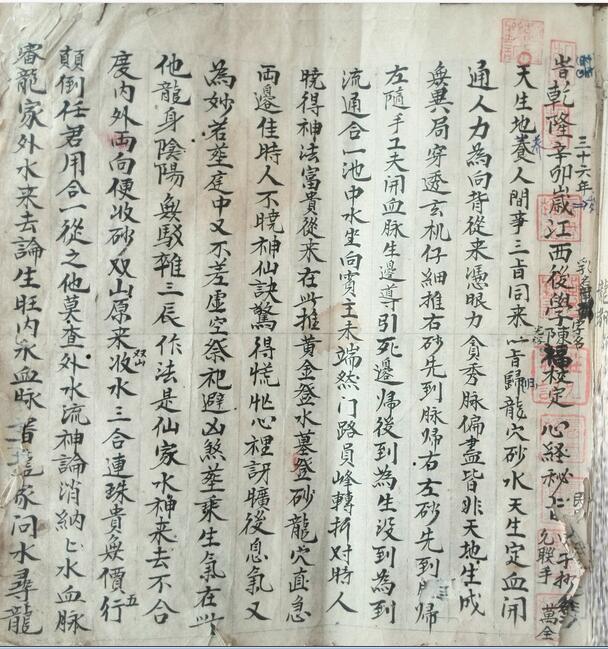 旹乾隆辛卯歲江西後學陳福校定 心経秘
三十六年
天生地養人間事三旨同來一旨歸龍穴砂水天生定血開
通人力為向背從来憑眼力貪秀脉偏盡皆非天地生成
無異局穿透玄机仔細推右砂先到脉歸右左砂先到脉歸
左隨手工夫開血脉生邊導引死邊歸後到為生設到為到
流通合一池中水坐向賓主未端然门路員峰轉折对時人
曉得神法富貴從来在此推黄金登水墓登砂龍穴直急
両邊佳時人不曉神仙訣驚得慌忙心裡訝曠後息氣又
為妙若塟庭中又不差虚空祭祀避凶煞塟乘生氣在此
他龍身陰陽無駁雜三辰作法是仙家水神来去不合
度内外両向便收砂双山原来收水三合連珠貴無價行
双山
五
顛倒任君用合一從之他莫查外水流神論消納上水血脉
審龍家外水来去論生旺内水血脉皆㨿家问水尋龍
允聫手
萬全